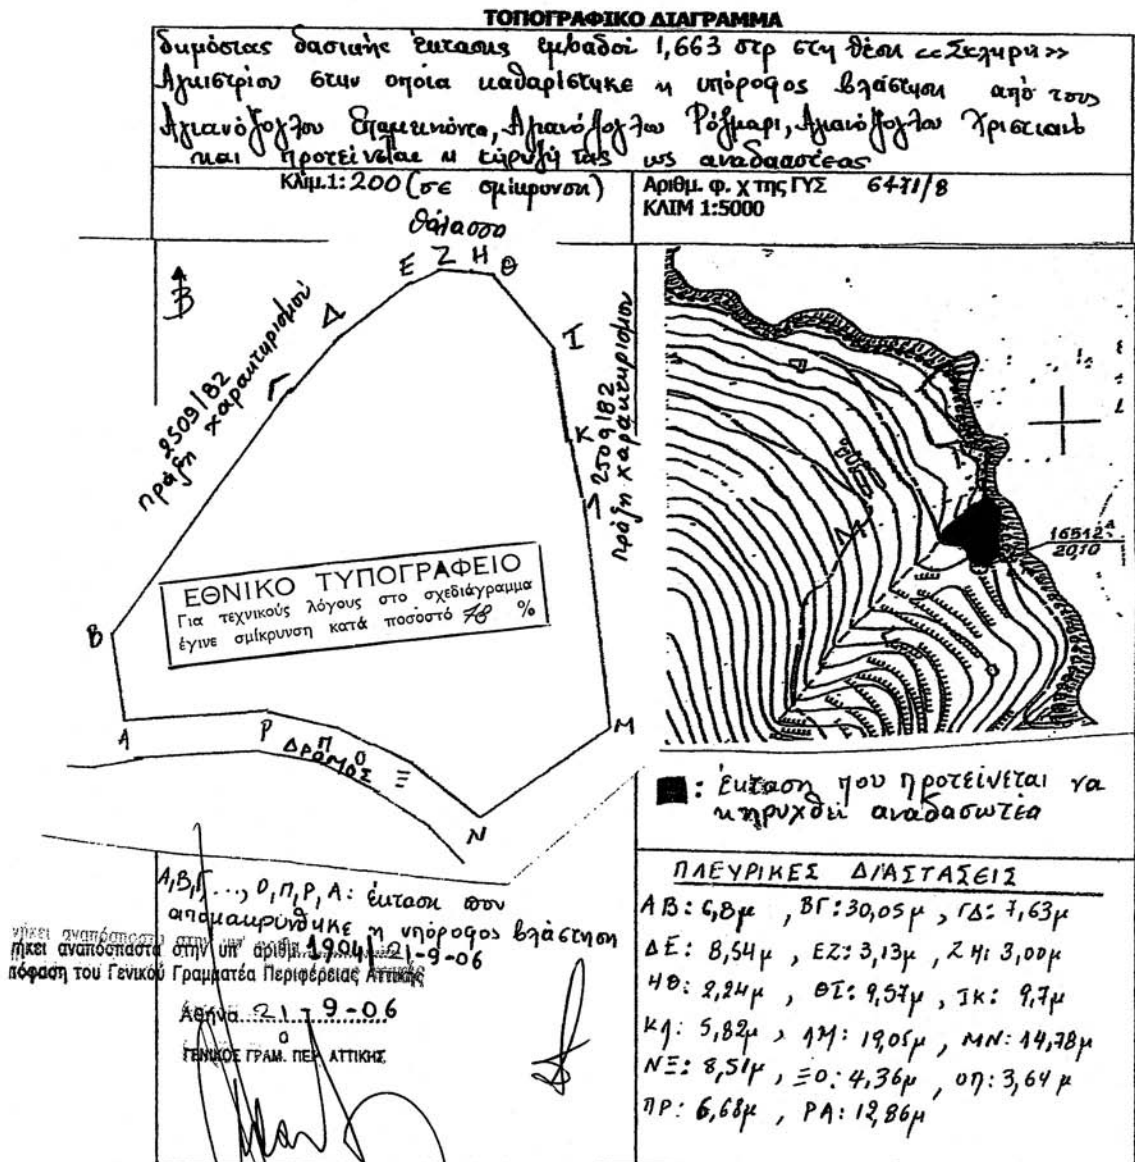 ΤΟΠΟΓΡΑΦΙΚΟ ΔΙΑΓΡΑΜΜΑ
δημόσιας δασικής έκτασης εμβαδού 1,663 στρ στη θέση «Σκληρή»
Αγκιστρίου στην οποία καθαρίστηκε η υπόροφος βλάστηση από τους
Αγιανόζογλου Επαμεινώντα, Αγιανόζογλου Ρόζμαρι, Αγιανόζογλου Χριστιανό
και προτείνεται η κήρυξή της ως αναδασωτέας
Κλίμ.1:200 (σε σμίκρυνση)
Αριθμ. φ. χ της ΓΥΣ 6471/8
ΚΛΙΜ 1:5000
θάλασσα
Β
Ε Ζ Η Θ
Δ
Ι
Γ
Κ
Λ
πράξη χαρακτηρισμού
2509/82
πράξη χαρακτηρισμού
2509/82
16512
2010
ΕΘΝΙΚΟ ΤΥΠΟΓΡΑΦΕΙΟ
Για τεχνικούς λόγους στο σχεδιάγραμμα
έγινε σμίκρυνση κατά ποσοστό 78 %
Β
Α
Ρ
Π
Ο
Ξ
Μ
Ν
ΔΡΟΜΟΣ
: έκταση που προτείνεται να
κηρυχθεί αναδασωτέα
Α,Β,Γ..., Ο,Π,Ρ,Α: έκταση που
απομακρύνθηκε η υπόροφος βλάστηση
νήκει αναπόσπαστα στην υπ' αριθμ. 1904/21-9-06
πόφαση του Γενικού Γραμματέα Περιφέρειας Αττικής
Αθήνα 21-9-06
Ο
ΓΕΝΙΚΟΣ ΓΡΑΜ. ΠΕΡ. ΑΤΤΙΚΗΣ
ΠΛΕΥΡΙΚΕΣ ΔΙΑΣΤΑΣΕΙΣ
ΑΒ: 6,8μ , ΒΓ: 30,05μ , ΓΔ: 7,63μ
ΔΕ: 8,54μ , ΕΖ: 3,13μ , ΖΗ: 3,00μ
ΗΘ: 2,24μ , ΘΙ: 9,57μ , ΙΚ: 9,7μ
ΚΛ: 5,82μ , ΛΜ: 19,05μ , ΜΝ: 14,78μ
ΝΞ: 8,51μ , ΞΟ: 4,36μ , ΟΠ: 3,64μ
ΠΡ: 6,68μ , ΡΑ: 12,86μ